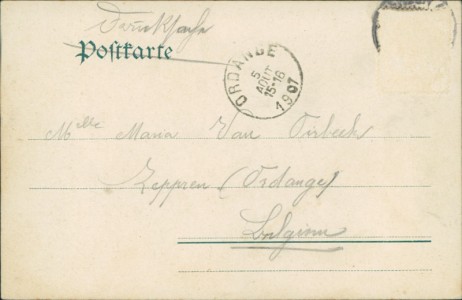 Drucksache
Postkarte
ORDANGE
5
AOUT
15-16
1907
Melle Maria Van
Zeppren (Ordange)
Belgium